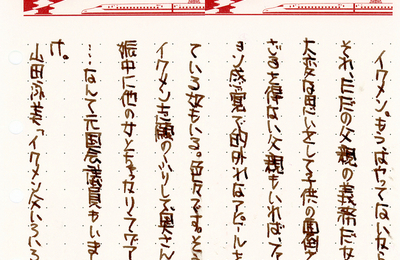 イクメン。もうはやってないなら
それ、ただの父親の義務だな
大変な思いをしてる子供の面倒
ざるを得ない父親もいれば、ファ
ョン感覚で的外れなアピールを
ている奴もいる。色々です。そ
イクメン主義のふりして、奥さん
娠中に他の女とちゃっかりしてワー
…なんて元国会議員もいま
け。
山田詠美「イクメン父いろいろ